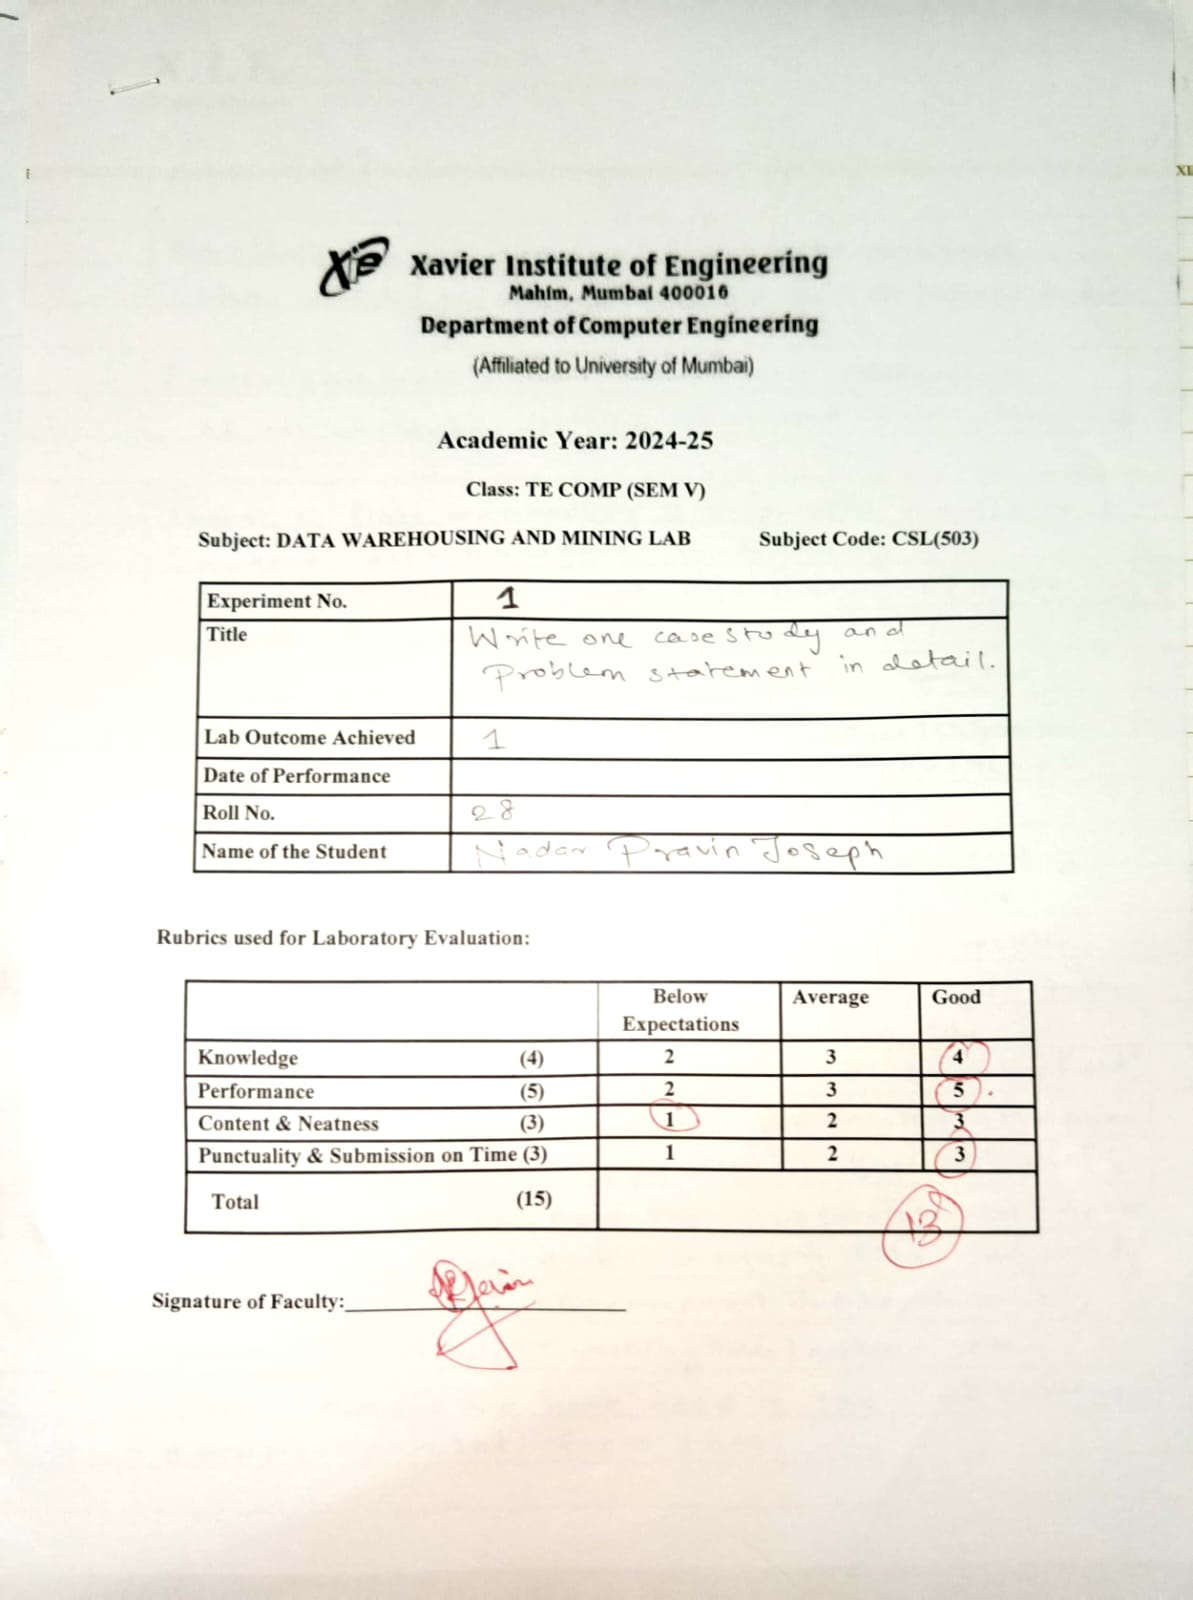 Xie Xavier Institute of Engineering
Mahim, Mumbai 400016
Department of Computer Engineering
(Affiliated to University of Mumbai)
Academic Year: 2024-25
Class: TE COMP (SEM V)
Subject: DATA WAREHOUSING AND MINING LAB Subject Code: CSL(503)
Experiment No. 1
Title Write one case study and
Problem statement in detail.
Lab Outcome Achieved 1
Date of Performance
Roll No. 28
Name of the Student Nadar Pravin Joseph
Rubrics used for Laboratory Evaluation:
Below Expectations Average Good
Knowledge (4) 2 3 4
Performance (5) 2 3 5
Content & Neatness (3) 1 2 3
Punctuality & Submission on Time (3) 1 2 3
Total (15) 13
Signature of Faculty: